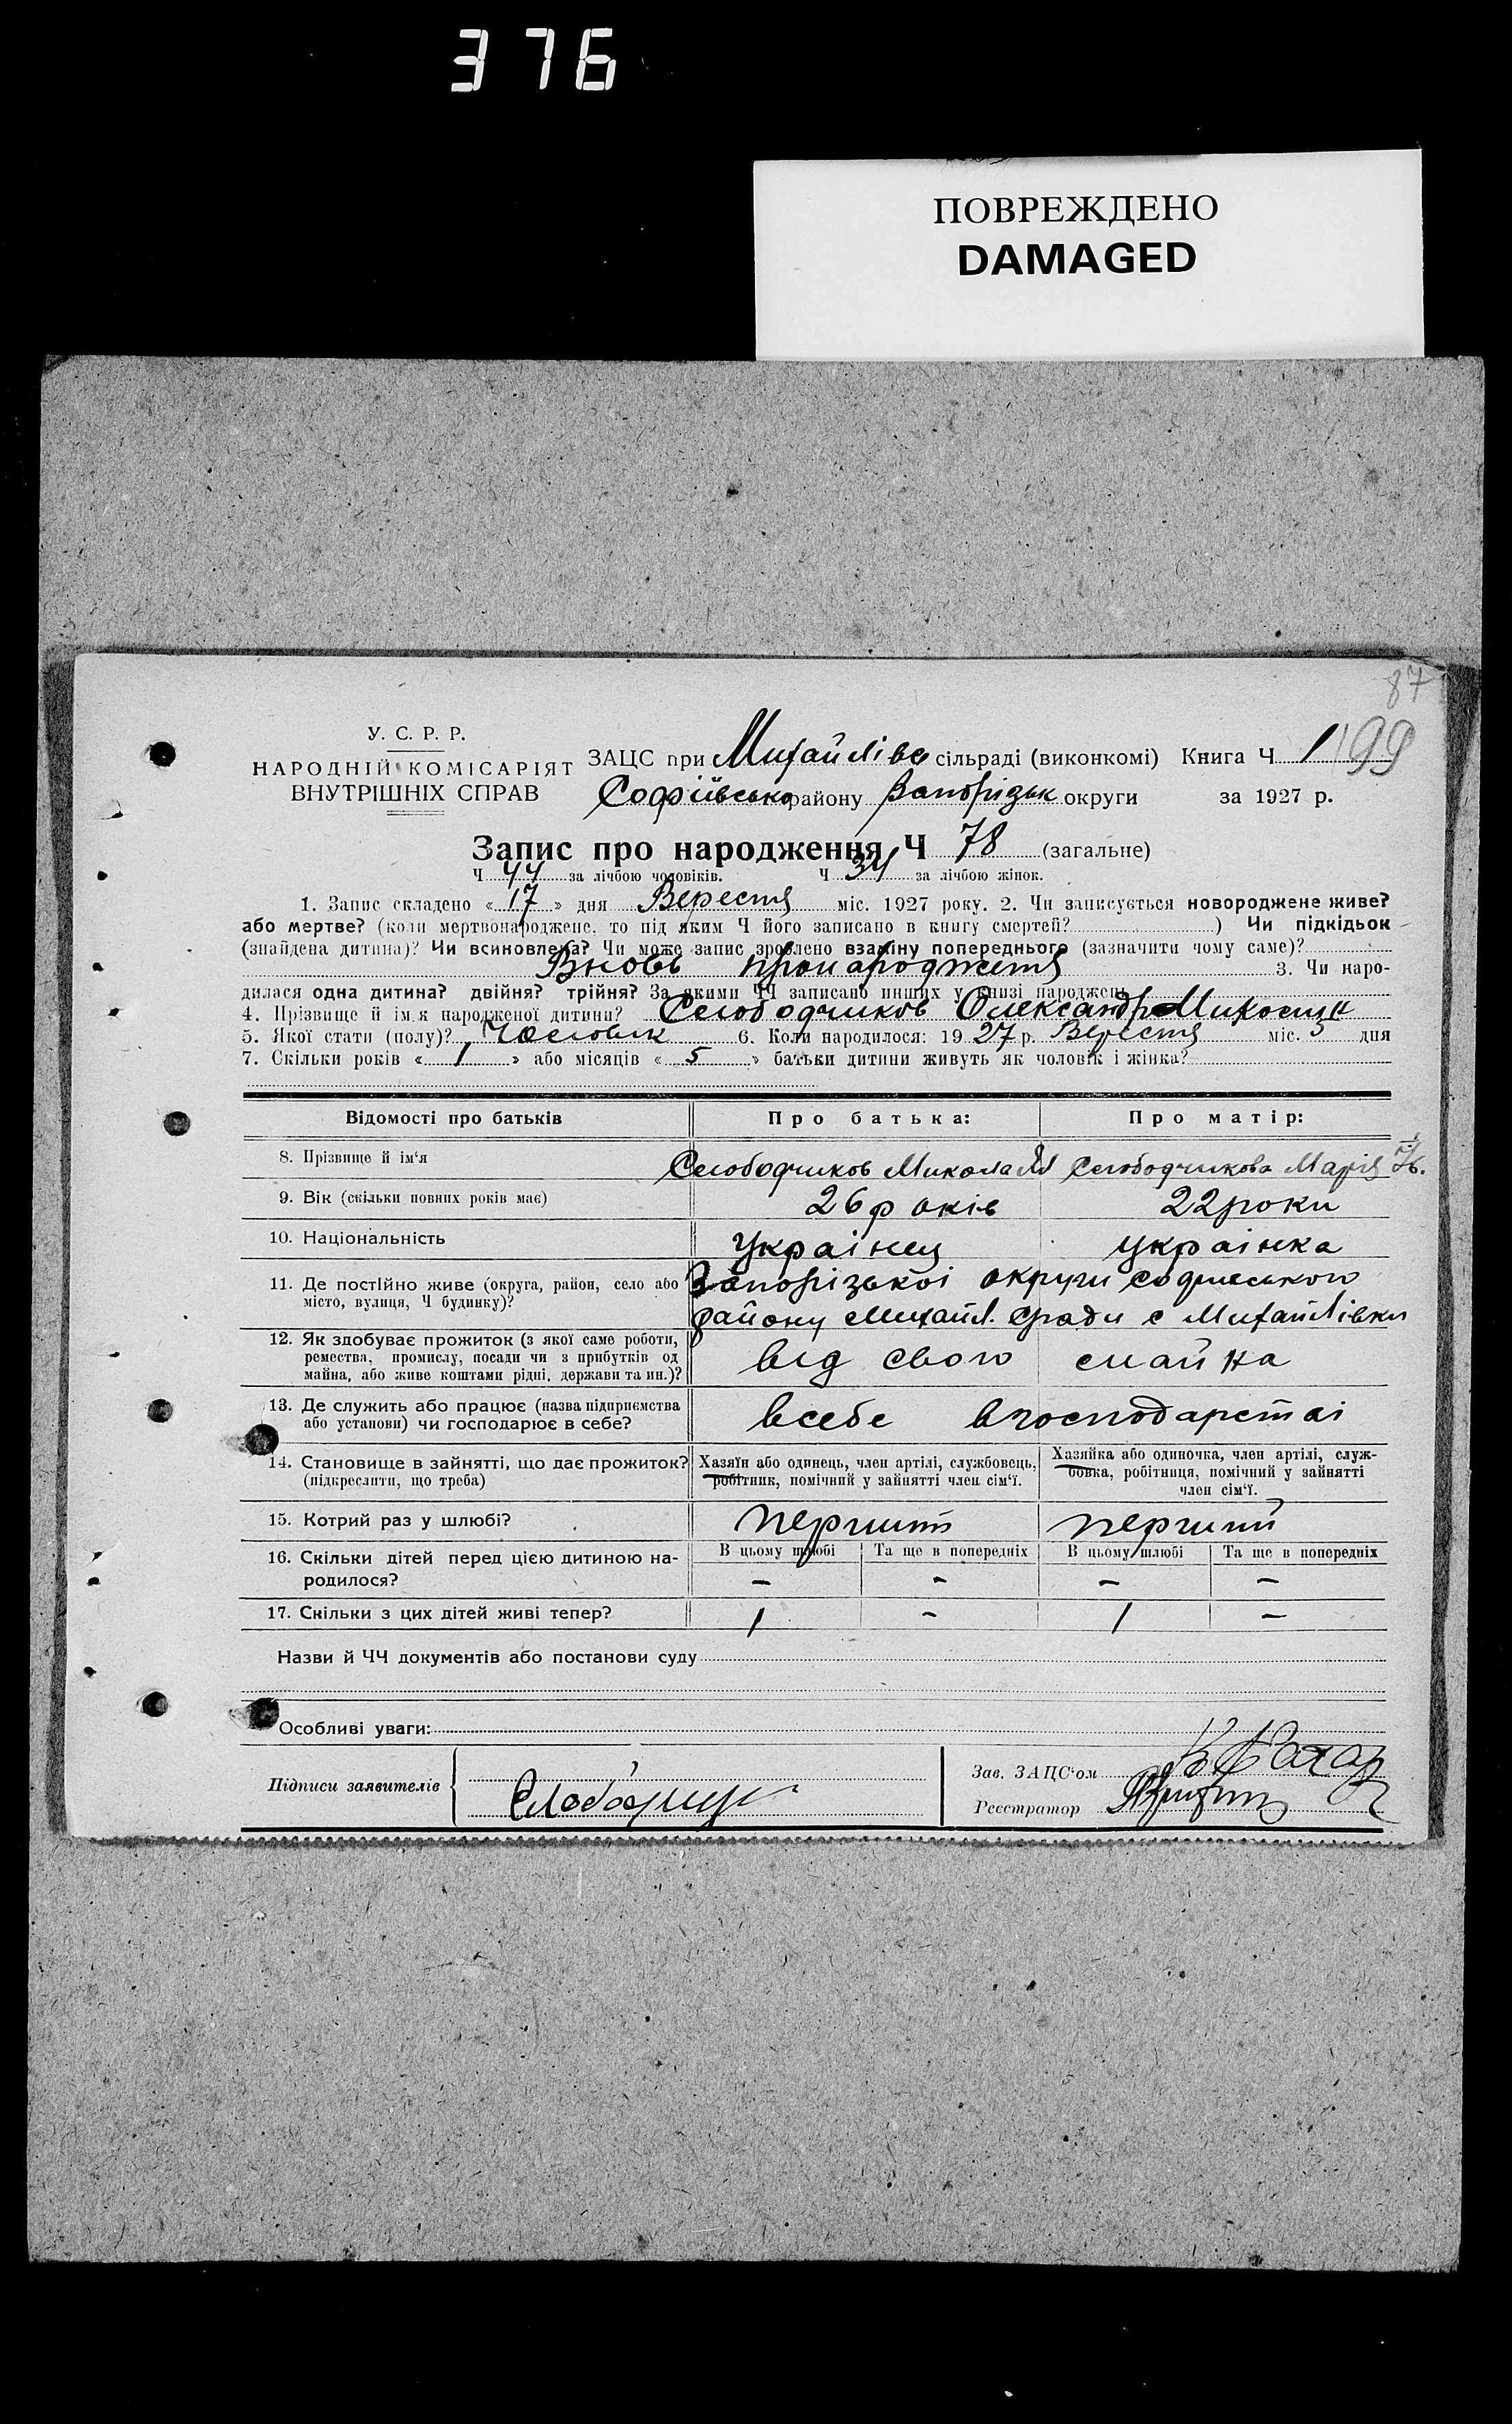 376
ПОВРЕЖДЕНО
DAMAGED
87
У. С. Р. Р.
НАРОДНІЙ КОМІСАРІЯТ
ВНУТРІШНІХ СПРАВ
ЗАЦС при Михайлівс сільраді (виконкомі) Книга Ч 1 199
Софіївсько району Запорізьк округи за 1927 р.
Запис про народження Ч 78 (загальне)
Ч 44 за лічбою чоловіків. Ч 34 за лічбою жінок.
1. Запис складено « 17 » дня Вересня міс. 1927 року. 2. Чи записується новороджене живе?
або мертве? (коли мертвонароджене, то під яким Ч його записано в книгу смертей? ) Чи підкідьок
(знайдена дитина)? Чи всиновлена? Чи може запис зроблено взаміну попереднього (зазначити чому саме)?
Вновь про народження 3. Чи наро-
дилася одна дитина? двійня? трійня? За якими ЧЧ записано инших у книзі народжень
4. Прізвище й ім'я народженої дитини? Слободчиков Олександр
5. Якої стати (полу)? Чоловик 6. Коли народилося: 1927 р. Вересня міс. 5 дня
7. Скільки років « 1 » або місяців « 5 » батьки дитини живуть як чоловік і жінка?
Відомості про батьків Про батька: Про матір:
8. Прізвище й ім'я Слободчиков Микола Слободчикова Марія
9. Вік (скільки повних років має) 26 років 22 роки
10. Національність Українец українка
11. Де постійно живе (округа, район, село або Запорізькоі округи софиеського
місто, вулиця, Ч будинку)? району Михайл. с ради с Михайлівки
12. Як здобуває прожиток (з якої саме роботи,
ремества, промислу, посади чи з прибутків од від свого майна
майна, або живе коштами рідні, держави та ин.)?
13. Де служить або працює (назва підприємства
або установи) чи господарює в себе? всебе вгосподарстві
14. Становище в зайнятті, що дає прожиток? Хазяїн або одинець, член артілі, службовець, Хазяйка або одиночка, член артілі, служ-
(підкреслити, що треба) робітник, помічний у зайнятті член сім'ї. бовка, робітниця, помічний у зайнятті
член сім'ї.
15. Котрий раз у шлюбі? перший перший
16. Скільки дітей перед цією дитиною на- В цьому шлюбі Та ще в попередніх В цьому шлюбі Та ще в попередніх
родилося? – – – –
17. Скільки з цих дітей живі тепер? 1 – 1 –
Назви й ЧЧ документів або постанови суду
Особливі уваги:
Підписи заявителів
Зав. ЗАЦС'ом
Реєстратор